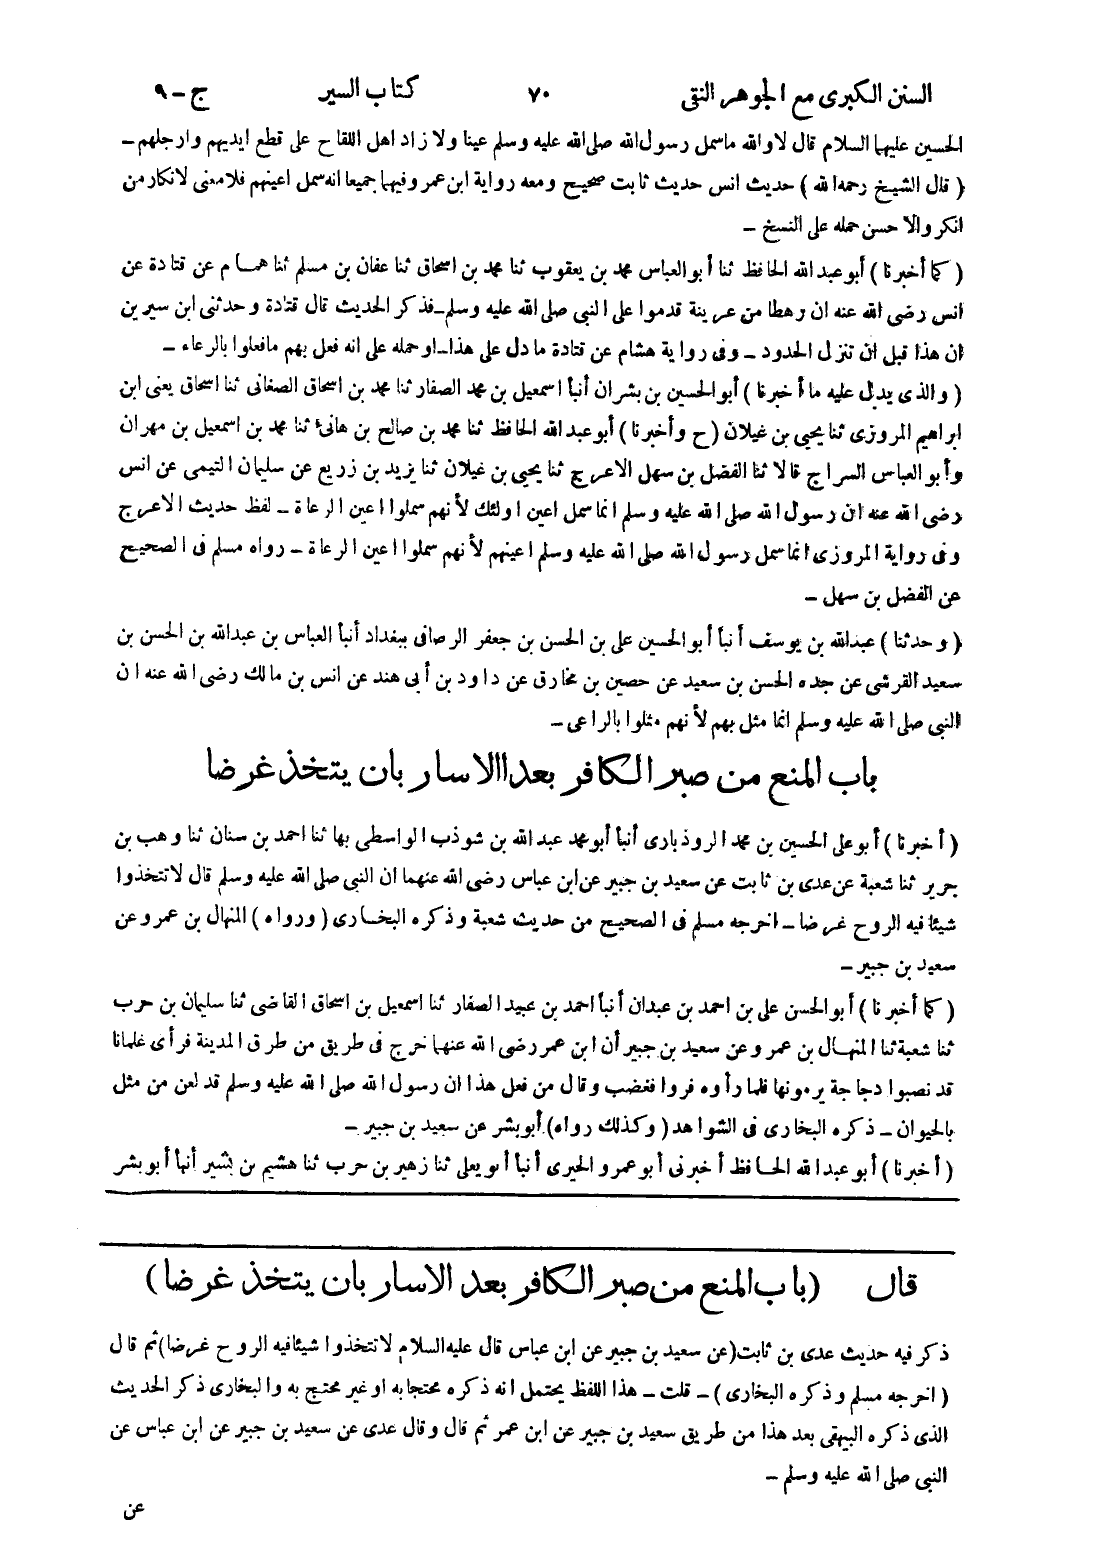 السنن الكبرى مع الجوهر النقى ٧٠ كتاب السير ج - ٩
الحسين عليهما السلام قال لا والله ما سمل رسول الله صلى الله عليه وسلم عينا ولا زاد اهل اللقاح على قطع ايديهم وارجلهم -
( قال الشيخ رحمه الله ) حديث انس حديث ثابت صحيح ومعه رواية ابن عمر وفيهما جميعا انه سمل اعينهم فلا معنى لانكار من
انكر والاحسن حمله على النسخ -
( كما أخبرنا ) أبو عبد الله الحافظ ثنا أبو العباس محمد بن يعقوب ثنا محمد بن اسحاق ثنا عفان بن مسلم ثنا همام عن قتادة عن
انس رضى الله عنه ان رهطا من عرينة قدموا على النبى صلى الله عليه وسلم - فذكر الحديث قال قتادة وحدثنى ابن سيرين
ان هذا قبل ان تنزل الحدود - وفى رواية هشام عن قتادة ما دل على هذا - او حمله على انه فعل بهم ما فعلوا بالرعاء -
( والذى يدل عليه ما أخبرنا ) أبو الحسين بن بشران أنبأ اسمعيل بن محمد الصفار ثنا محمد بن اسحاق الصغانى ثنا اسحاق يعنى ابن
ابراهيم المروزى ثنا يحيى بن غيلان ( ح وأخبرنا ) أبو عبد الله الحافظ ثنا محمد بن صالح بن هانئ ثنا محمد بن اسمعيل بن مهران
وأبو العباس السراج قالا ثنا الفضل بن سهل الاعرج ثنا يحيى بن غيلان ثنا يزيد بن زريع عن سليمان التيمى عن انس
رضى الله عنه ان رسول الله صلى الله عليه وسلم انما سمل اعين اولئك لأنهم سملوا اعين الرعاة - لفظ حديث الاعرج
وفى رواية المروزى انما سمل رسول الله صلى الله عليه وسلم اعينهم لأنهم سملوا اعين الرعاة - رواه مسلم فى الصحيح
عن الفضل بن سهل -
( وحدثنا ) عبدالله بن يوسف أنبأ أبو الحسين على بن الحسن بن جعفر الرصافى ببغداد أنبأ العباس بن عبدالله بن الحسن بن
سعيد القرشى عن جده الحسن بن سعيد عن حصين بن مخارق عن داود بن أبى هند عن انس بن مالك رضى الله عنه ان
النبى صلى الله عليه وسلم انما مثل بهم لأنهم مثلوا بالراعى -
باب المنع من صبر الكافر بعد االاسار بان يتخذ غرضا
( أخبرنا ) أبو على الحسين بن محمد الروذبارى أنبأ أبو محمد عبد الله بن شوذب الواسطى بها ثنا احمد بن سنان ثنا وهب بن
جرير ثنا شعبة عن عدى بن ثابت عن سعيد بن جبير عن ابن عباس رضى الله عنهما ان النبى صلى الله عليه وسلم قال لا تتخذوا
شيئا فيه الروح غرضا - اخرجه مسلم فى الصحيح من حديث شعبة وذكره البخارى ( ورواه ) المنهال بن عمرو عن
سعيد بن جبير -
( كما أخبرنا ) أبو الحسن على بن احمد بن عبدان أنبأ احمد بن عبيد الصفار ثنا اسمعيل بن اسحاق القاضى ثنا سليمان بن حرب
ثنا شعبة ثنا المنهال بن عمرو عن سعيد بن جبير أن ابن عمر رضى الله عنهما خرج فى طريق من طرق المدينة فرأى غلمانا
قد نصبوا دجاجة يرمونها فلما رأوه فروا فغضب وقال من فعل هذا ان رسول الله صلى الله عليه وسلم قد لعن من مثل
بالحيوان - ذكره البخارى فى الشواهد ( وكذلك رواه ) أبو بشر عن سعيد بن جبير -
( أخبرنا ) أبو عبد الله الحافظ أخبرنى أبو عمرو الحيرى أنبأ أبو يعلى ثنا زهير بن حرب ثنا هشيم بن بشير أنبأ أبو بشر
قال ( باب المنع من صبر الكافر بعد الاسار بان يتخذ غرضا )
ذكر فيه حديث عدى بن ثابت ( عن سعيد بن جبير عن ابن عباس قال عليه السلام لا تتخذوا شيئا فيه الروح غرضا ) ثم قال
( اخرجه مسلم وذكره البخارى ) - قلت - هذا اللفظ يحتمل انه ذكره محتجا به او غير محتج به والبخارى ذكر الحديث
الذى ذكره البيهقى بعد هذا من طريق سعيد بن جبير عن ابن عمر ثم قال وقال عدى عن سعيد بن جبير عن ابن عباس عن
النبى صلى الله عليه وسلم -
عن